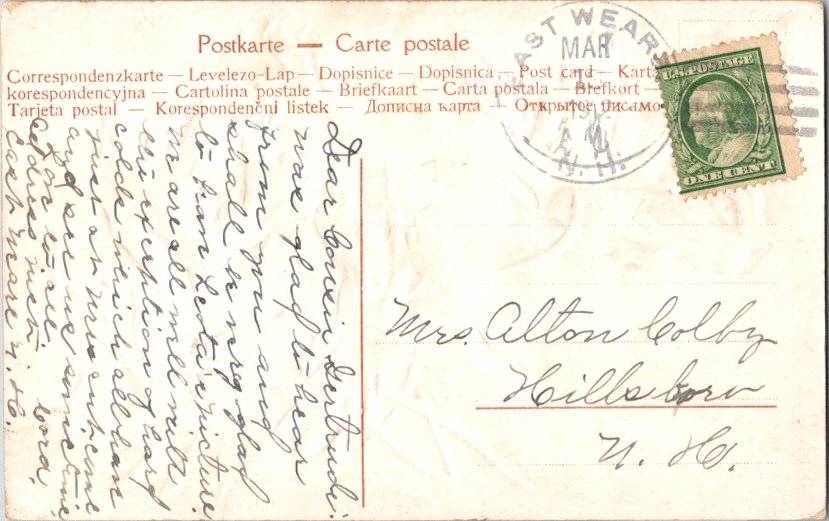 Postkarte — Carte postale
Correspondenzkarte — Levelezo-Lap — Dopisnice — Dopisnica — Post card — Karta
korespondencyjna — Cartolina postale — Briefkaart — Carta postala — Brefkort —
Tarjeta postal — Korespondenční listek — Дописна карта — Открытое письмо
EAST WEARE
MAR
1
A M
N. H.
U.S. POSTAGE
ONE CENT
Dear Cousin Gertrude:
was glad to hear
from you and
shall be very glad
to have Leota's picture.
We are all well with
the exception of hard
colds which all have
just at present. come
and see us sometime
love to all.
Address just
East Weare N. H.
Mrs. Alton Colby
Hillsboro
N. H.